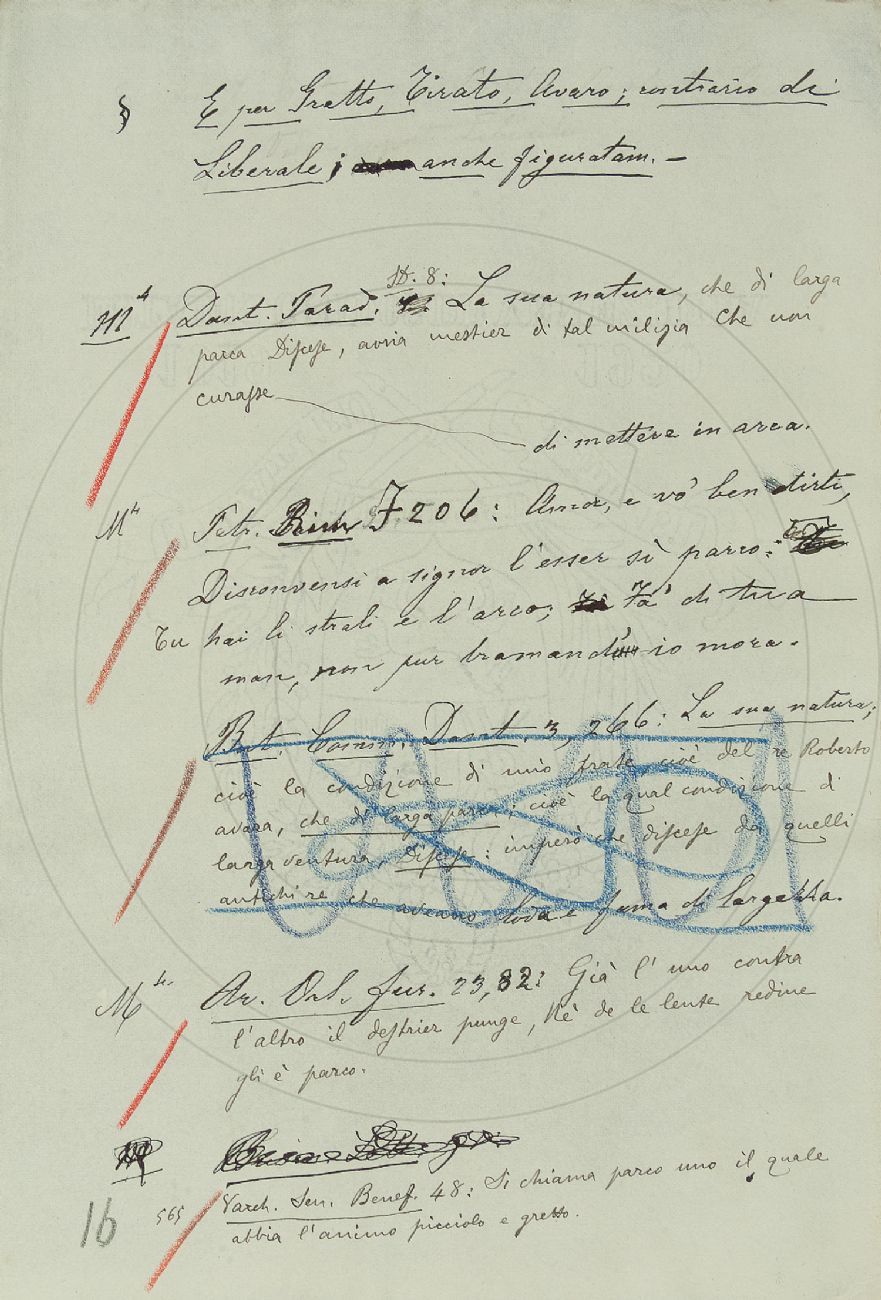 § E per Gretto, Tirato, Avaro; contrario di
Liberale; anche figuratam. —
M⁴ Dant. Parad. 8: La sua natura, che di larga
parca Discese, avria mestier di tal milizia Che non
curasse
di mettere in arca.
M⁴ Petr. Rim. F 206: Amor, e vo' ben dirti,
Disconvensi a signor l'esser sì parco:
Tu hai li strali e l'arco; Fa' di tua
man, non pur bramand' io mora.
But. Comm. Dant. 3, 266: La sua natura;
cioè la condizione di uno frate cioè del re Roberto
avara, che di larga parca; cioè la qual condizione di
larga ventura, Discese: imperò che discese da quelli
antichi re che aveano loda e fama di largezza.
M⁴ Ar. Orl. fur. 23, 82: Già l'uno contra
l'altro il destrier punge, Nè de le lente redine
gli è parco.
565 Varch. Sen. Benef. 48: Si chiama parco uno il quale
abbia l'animo picciolo e gretto.
16